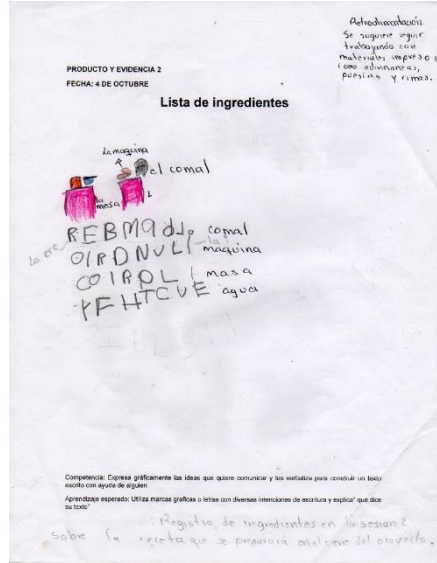 Retroalimentación
Se sugiere seguir
trabajando con
materiales impreso
como adivinanzas,
poesías y rimas.
PRODUCTO Y EVIDENCIA 2
FECHA: 4 DE OCTUBRE
Lista de ingredientes
la maquina
el comal
la
masa
REBMadJo comal
OIRDNULI maquina
COIROL masa
YFHTCUE agua
Competencia: Expresa gráficamente las ideas que quiere comunicar y las verbaliza para construir un texto
escrito con ayuda de alguien.
Aprendizaje esperado: Utiliza marcas graficas o letras con diversas intenciones de escritura y explica" que dice
su texto"
Registro de ingredientes en la sesion 2
sobre la receta que se preparará en el cierre del proyecto.